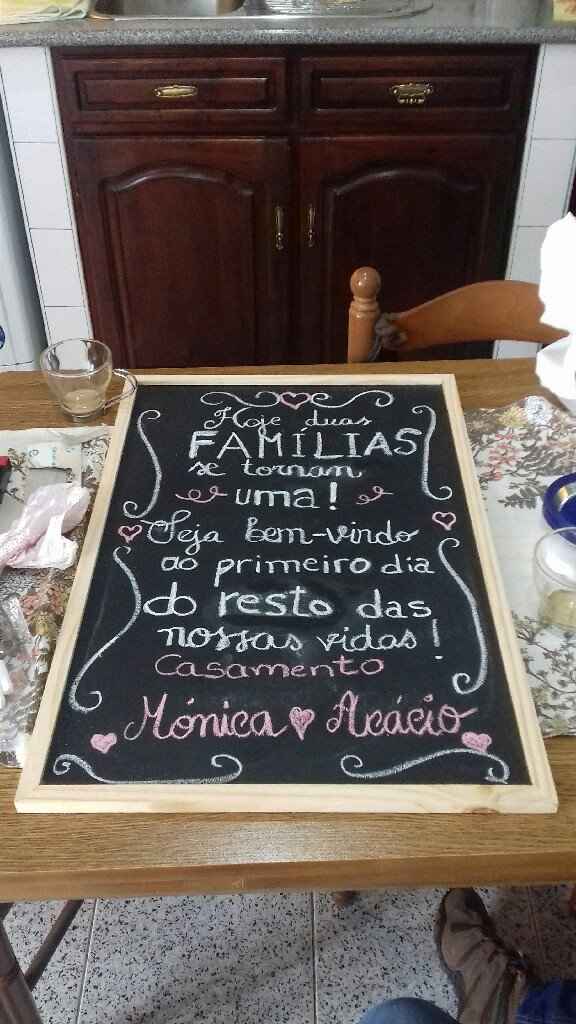 Hoje duas
FAMÍLIAS
se tornam
uma!
Seja bem-vindo
ao primeiro dia
do resto das
nossas vidas!
Casamento
Mónica ♥ Acácio